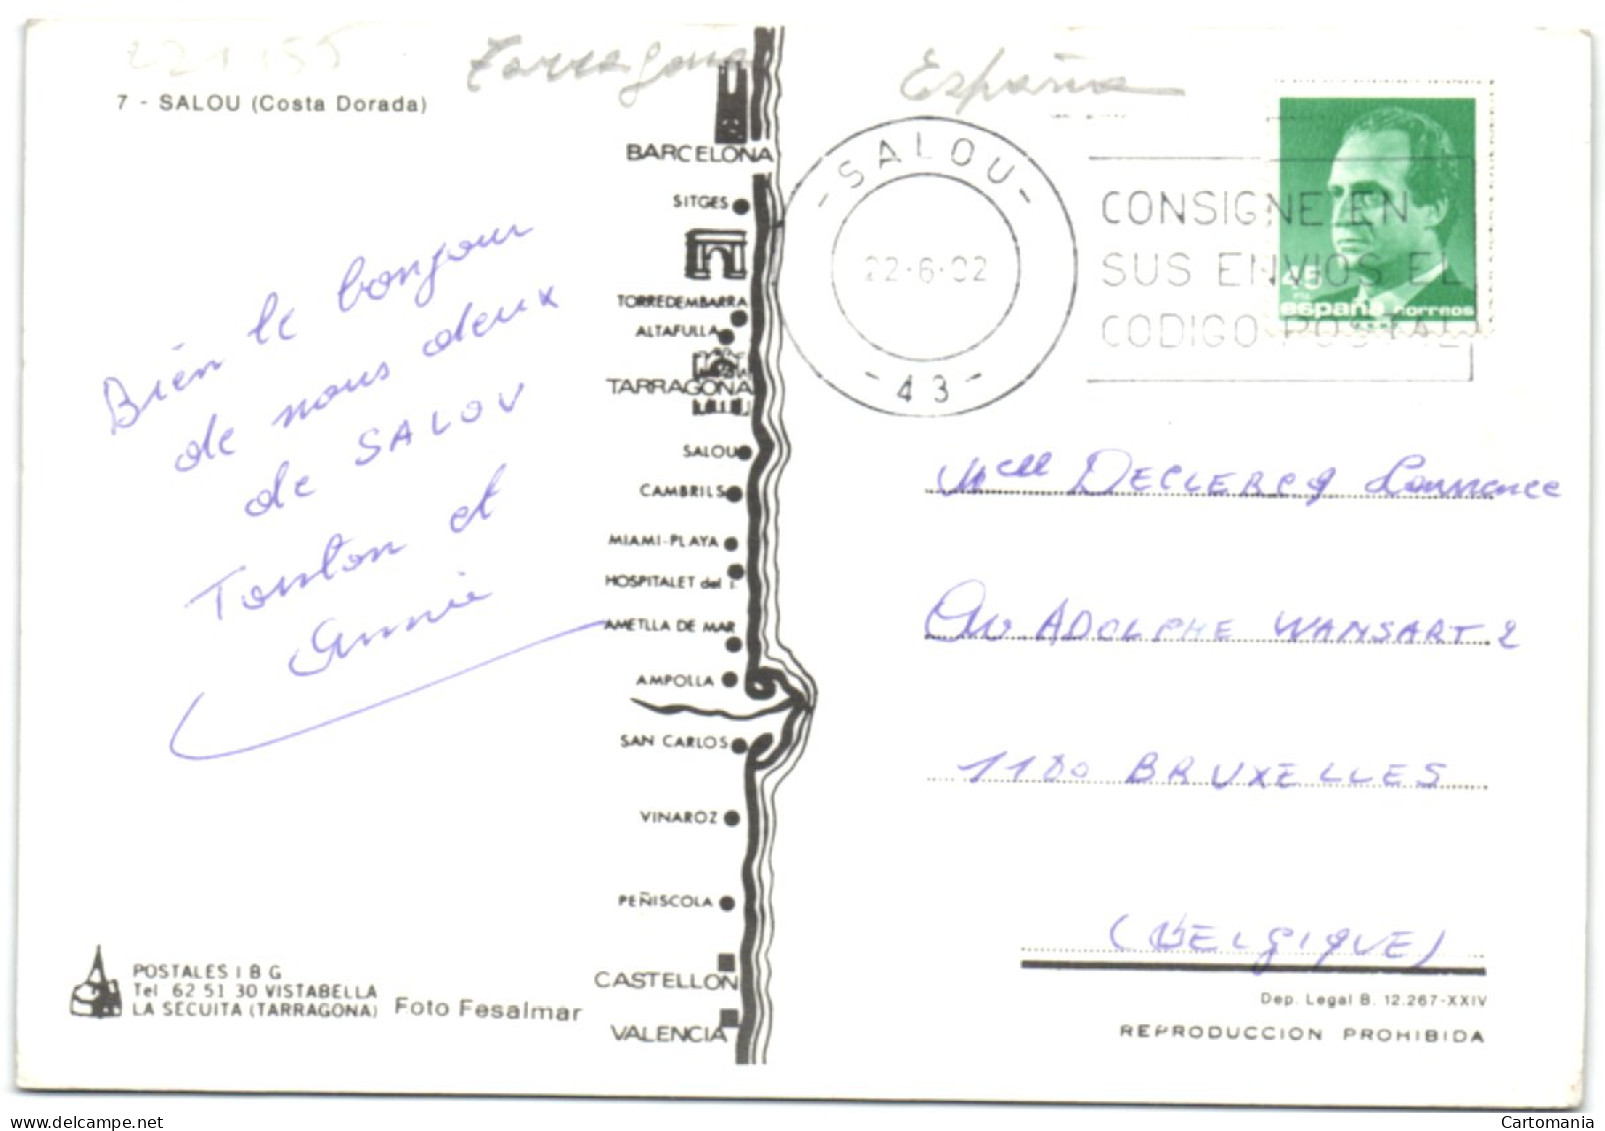 Tarragona
España
7 - SALOU (Costa Dorada)
Bien le bonjour
de nous deux
de SALOU
Tonton et
Annie
BARCELONA
SITGES
TORREDEMBARRA
ALTAFULLA
TARRAGONA
SALOU
CAMBRILS
MIAMI-PLAYA
HOSPITALET del I.
AMETLLA DE MAR
AMPOLLA
SAN CARLOS
VINAROZ
PEÑISCOLA
CASTELLON
VALENCIA
POSTALES I B G
Tel 62 51 30 VISTABELLA
LA SECUITA (TARRAGONA) Foto Fesalmar
- SALOU -
22-6-92
- 43 -
CONSIGNE EN
SUS ENVIOS EL
CODIGO POSTAL
45
PTA
españa correos
Mcelle DECLERCQ Laurence
Av ADOLPHE WANSART 2
1180 BRUXELLES
(BELGIQUE)
Dep. Legal B. 12.267-XXIV
REPRODUCCION PROHIBIDA
Cartomania